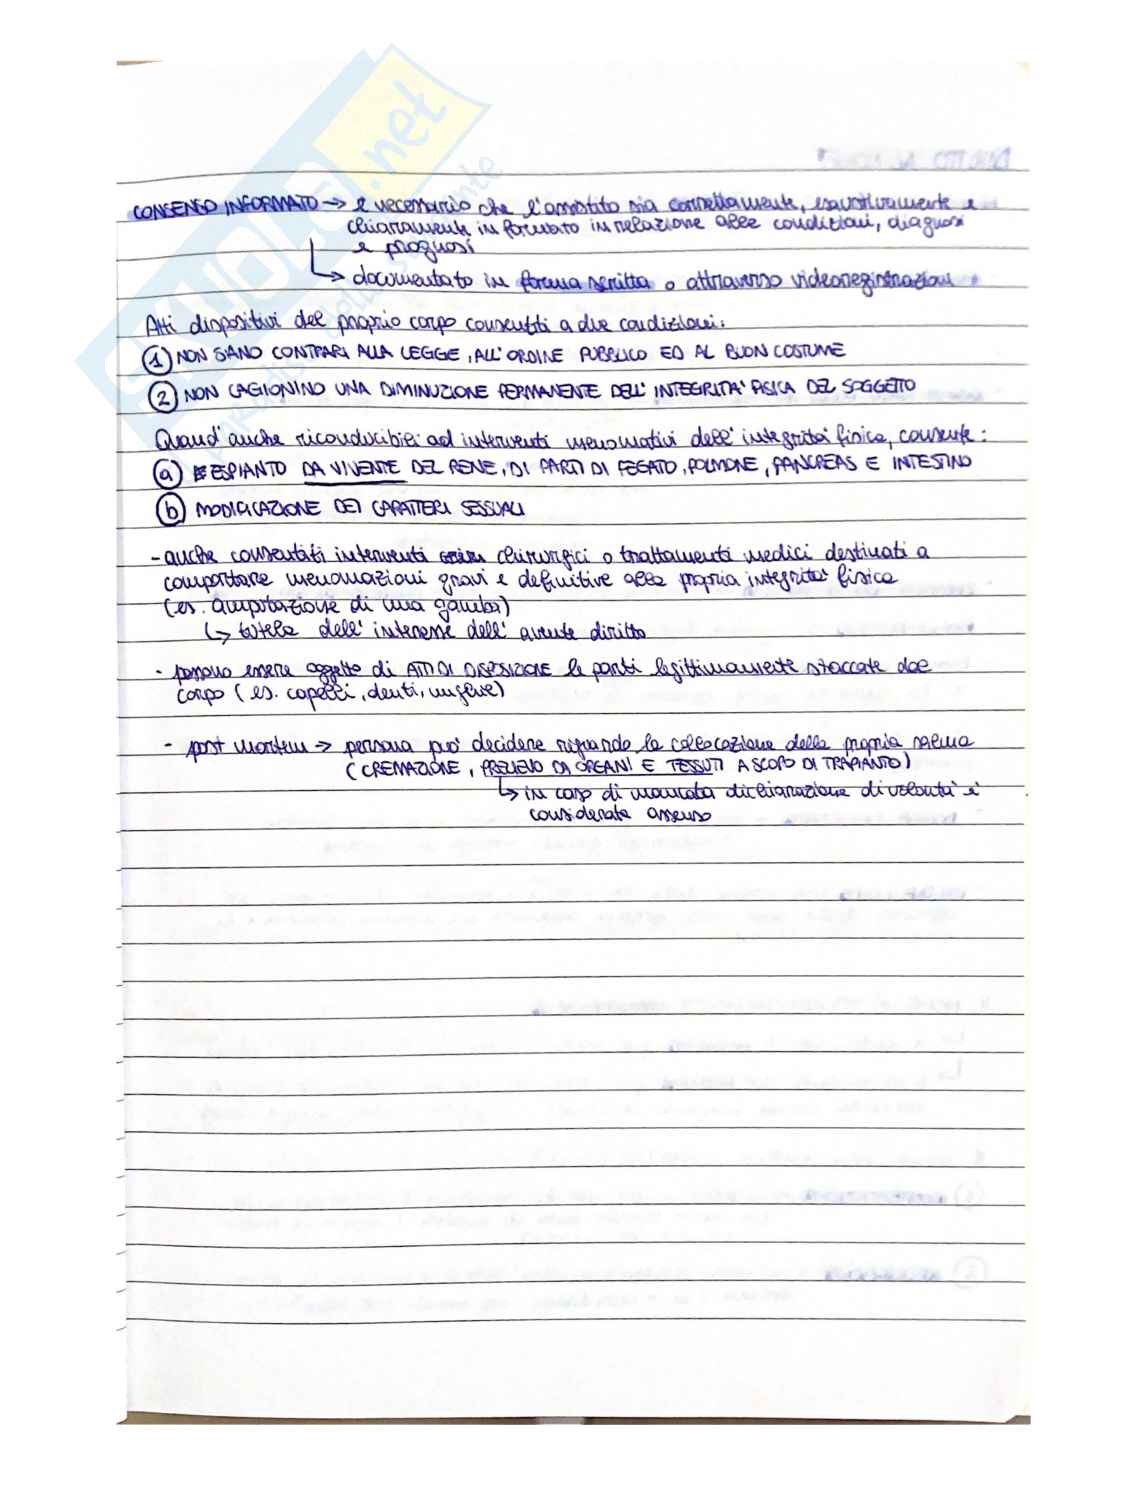 CONSENSO INFORMATO → è necessario che l'assistito sia correttamente, esaustivamente e
chiaramente informato in relazione alle condizioni, diagnosi
e prognosi
↳ documentato in forma scritta o attraverso videoregistrazioni
Atti dispositivi del proprio corpo consentiti a due condizioni:
1 NON SIANO CONTRARI ALLA LEGGE, ALL'ORDINE PUBBLICO ED AL BUON COSTUME
2 NON CAGIONINO UNA DIMINUZIONE PERMANENTE DELL'INTEGRITA' FISICA DEL SOGGETTO
Quand'anche riconducibili ad interventi menomativi dell'integrità fisica, consente:
a ESPIANTO DA VIVENTE DEL RENE, DI PARTI DI FEGATO, POLMONE, PANCREAS E INTESTINO
b MODIFICAZIONE DEI CARATTERI SESSUALI
- anche consentiti interventi chirurgici o trattamenti medici destinati a
comportare menomazioni gravi e definitive alla propria integrità fisica
(es. amputazione di una gamba)
↳ tutela dell'interesse dell'avente diritto
- possono essere oggetto di ATTI DI DISPOSIZIONE le parti legittimamente staccate dal
corpo (es. capelli, denti, unghie)
- post mortem → persona può decidere riguardo la collocazione della propria salma
(CREMAZIONE, PRELIEVO DI ORGANI E TESSUTI A SCOPO DI TRAPIANTO)
↳ in caso di mancata dichiarazione di volontà è
considerato assenso
SKUOLA.net